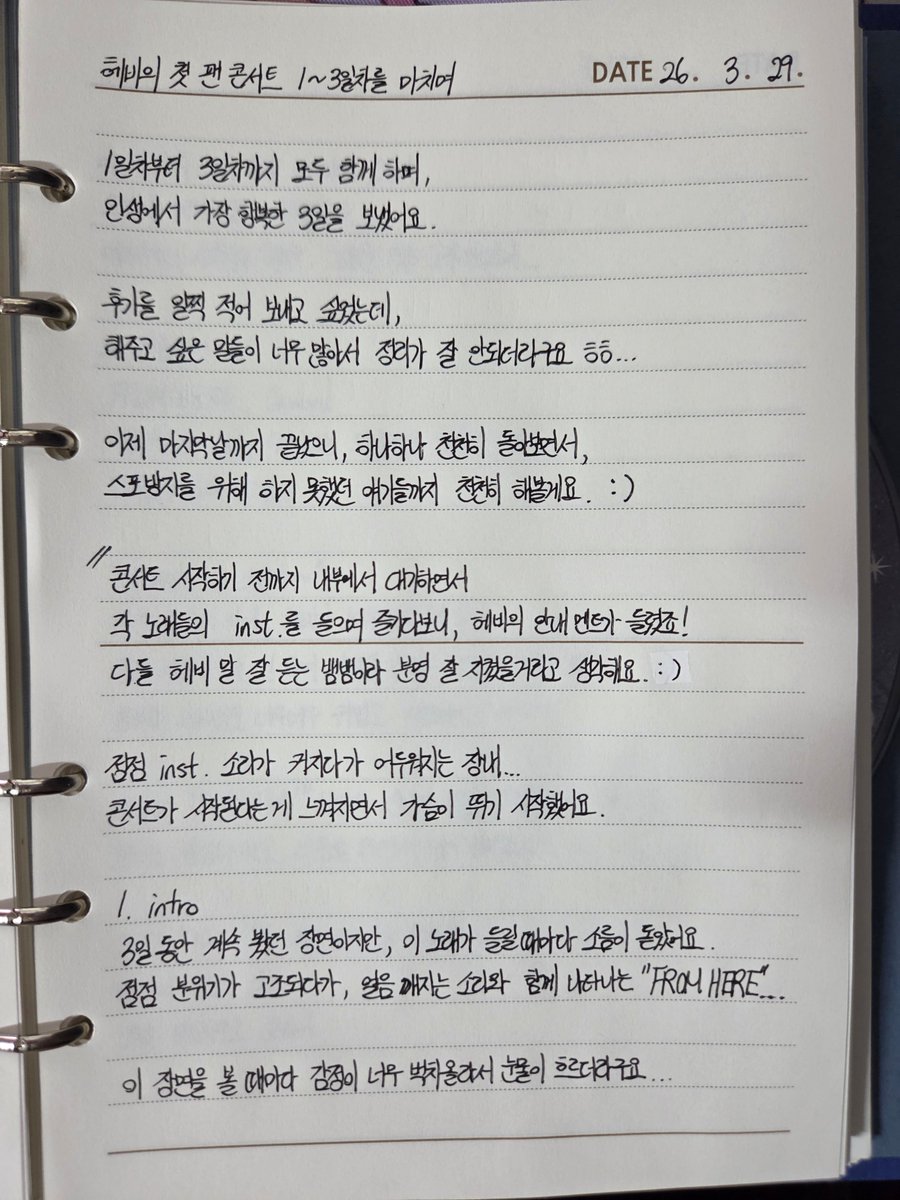 헤비의 첫 팬 콘서트 1~3일차를 마치며
DATE 26. 3. 29.
1일차부터 3일차까지 모두 함께 하며,
인생에서 가장 행복한 3일을 보냈어요.
후기를 일찍 적어 보내고 싶었는데,
해주고 싶은 말들이 너무 많아서 정리가 잘 안되더라구요 ㅎㅎ...
이제 마지막날까지 끝났으니, 하나하나 천천히 돌아보면서,
스포방지를 위해 하지 못했던 얘기들까지 천천히 해볼게요. :)
// 콘서트 시작하기 전까지 내부에서 대기하면서
각 노래들의 inst.를 들으며 즐기다보니, 헤비의 안내 멘트가 들렸죠!
다들 헤비 말 잘 듣는 뱀뱀이라 분명 잘 지켰을거라고 생각해요. :)
점점 inst. 소리가 커지다가 어두워지는 장내...
콘서트가 시작된다는게 느껴지면서 가슴이 뛰기 시작했어요.
1. intro
3일 동안 계속 봤던 장면이지만, 이 노래가 들릴때마다 소름이 돋았어요.
점점 분위기가 고조되다가, 얼음 깨지는 소리와 함께 나타나는 "FROM HERE"...
이 장면을 볼 때마다 감정이 너무 벅차올라서 눈물이 흐르더라구요...